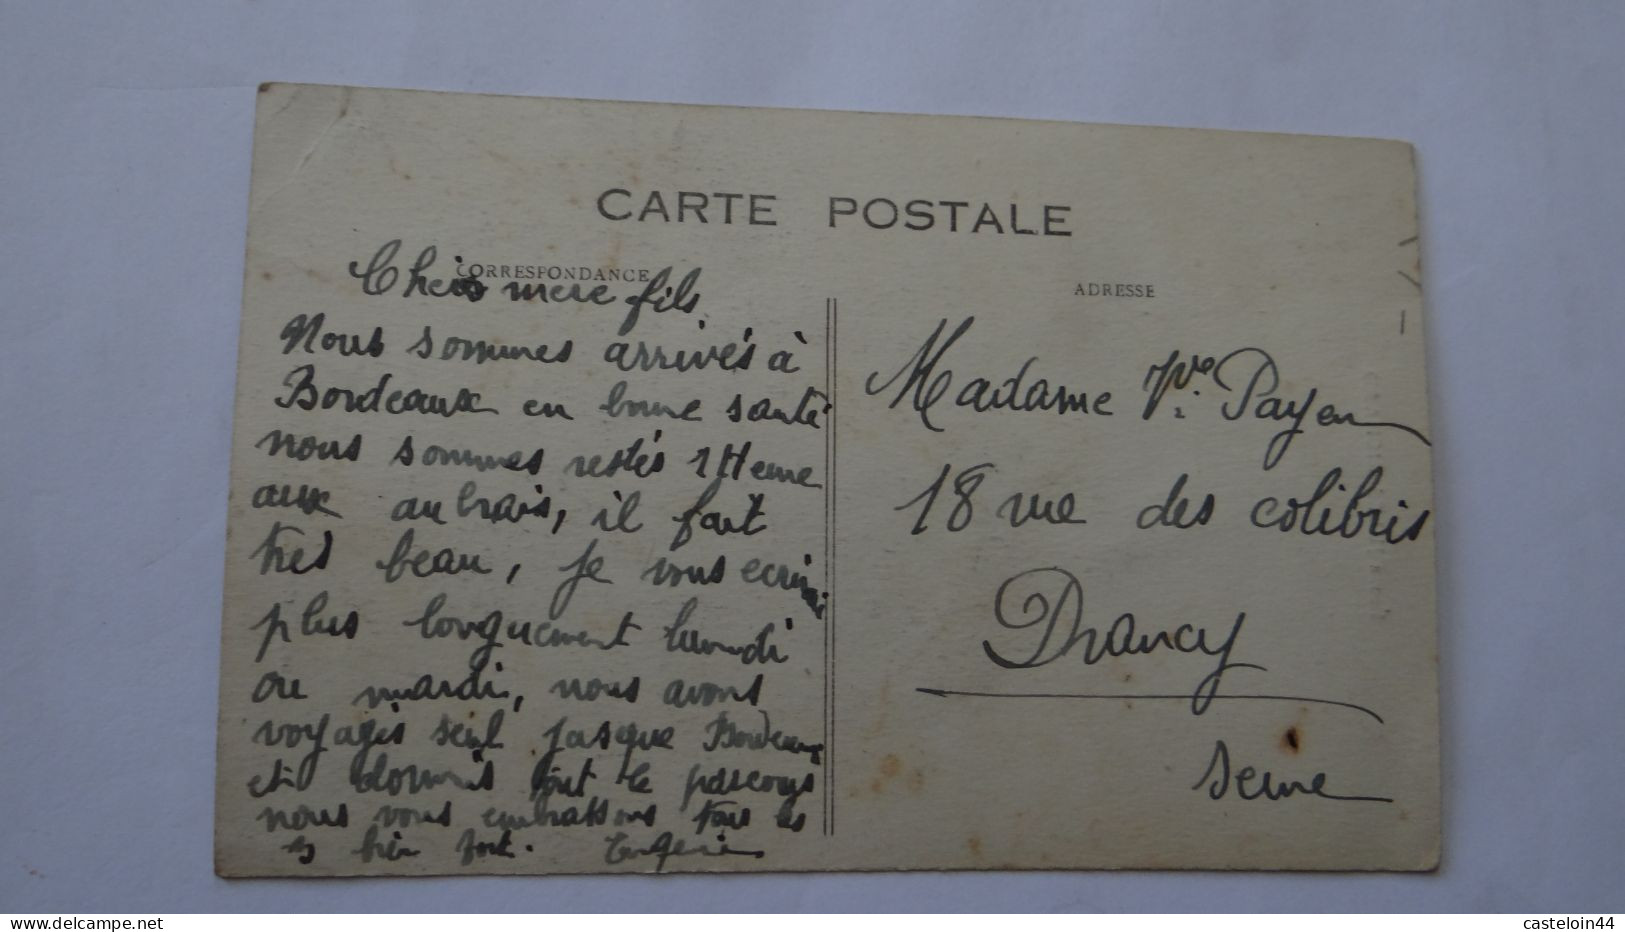 CARTE POSTALE
CORRESPONDANCE
Chers mere fils
Nous sommes arrivés à
Bordeaux en bonne santé
nous sommes restés 1 Heure
aux aubrais, il fait
tres beau, je vous ecrirai
plus longuement lundi
ou mardi, nous avons
voyagés seul jusque Bordeaux
et dormis tout le parcours
nous vous embrassons tous les
3 bien fort. Eugenie
ADRESSE
Madame Vve Payen
18 rue des colibris
Drancy
Seine
casteloin44